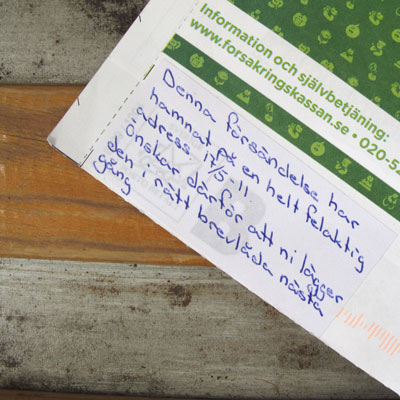 Information och självbetjäning:
www.forsakringskassan.se • 020-52
Denna försändelse har
hamnat på en helt felaktig
adress 17/5-11
önskar därför att ni lägger
den i rätt brevlåda nästa
gång